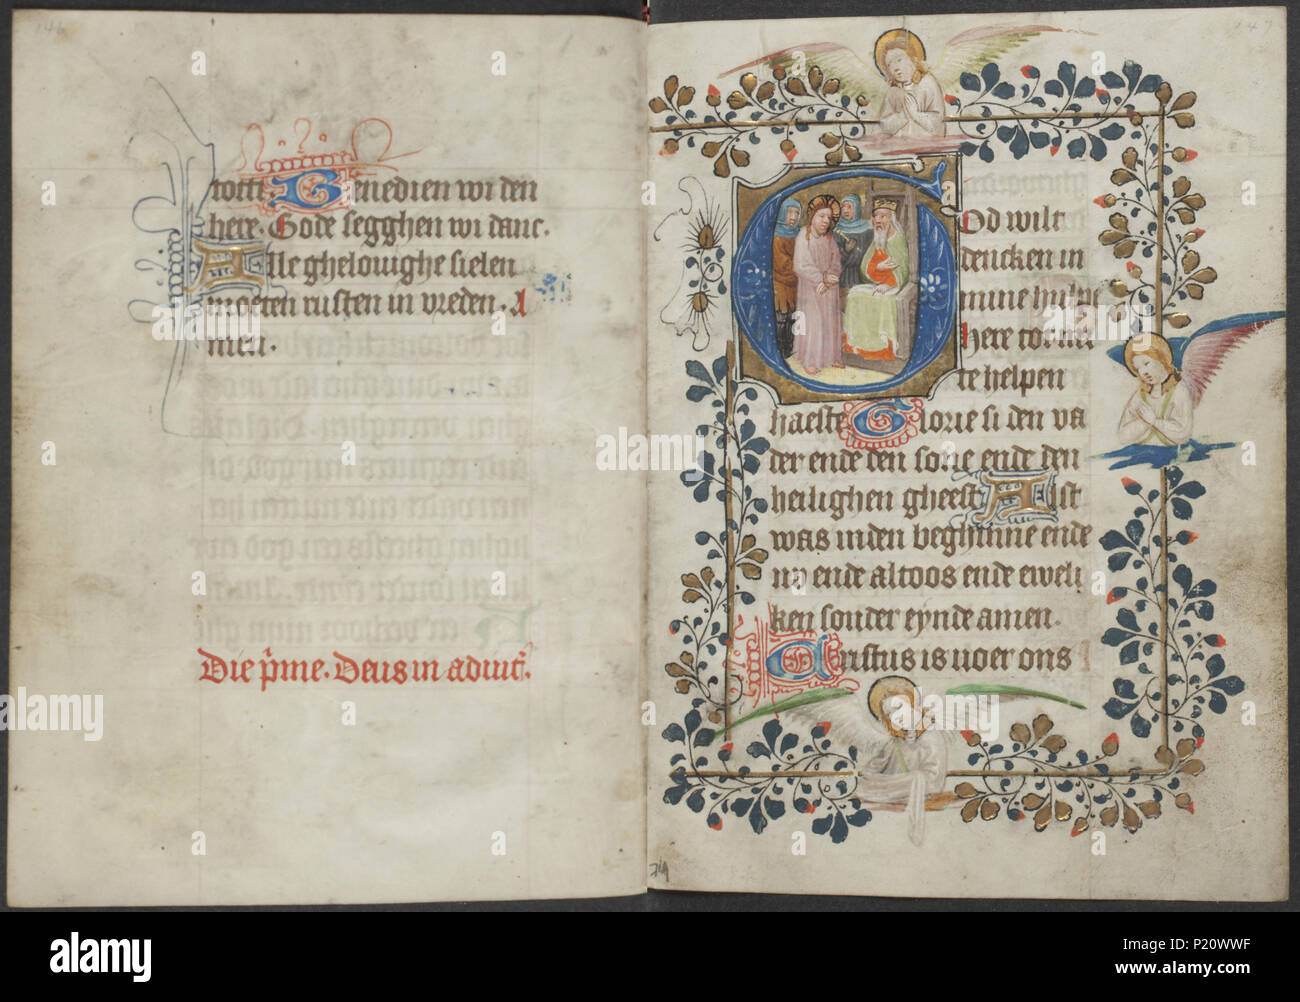 146
Benedien wi den
here. Gode segghen wi danc.
Alle ghelouighe sielen
moeten rusten in vreden. A
men.
Die p̄me. Deus in adiut̄.
147
God wilt
dencken in
mine hulpe
Here com mi
te helpen
haeste Glorie si den va
der ende den sone ende den
heilighen gheest Alst
was inden beghinne ende
nv ende altoos ende eweli
ken sonder eynde amen.
Cristus is voer ons
74
alamy
Image ID: P20WWF
www.alamy.com